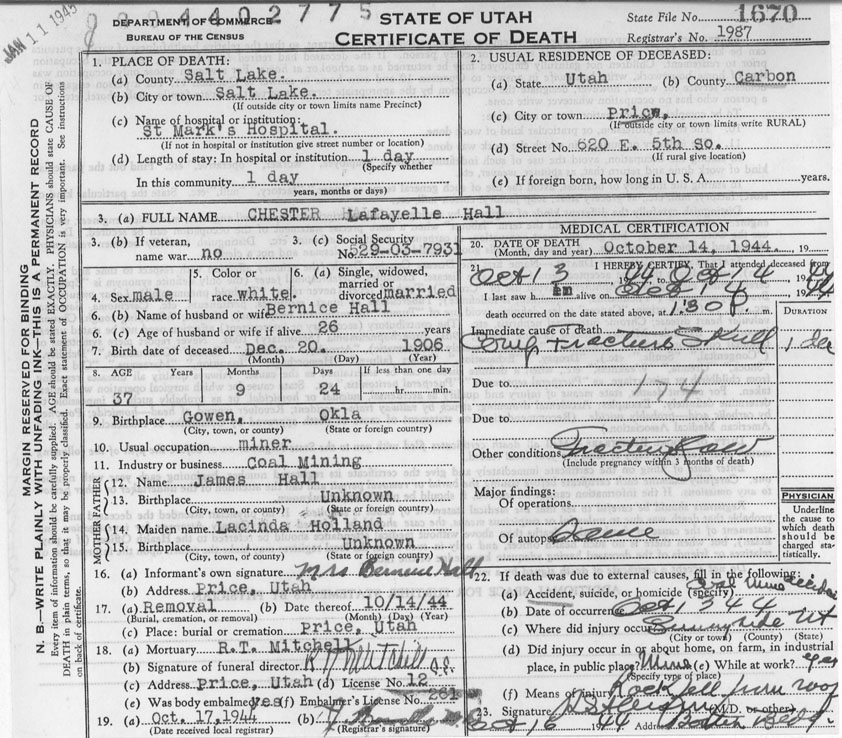 JAN 11 1945
DEPARTMENT OF COMMERCE
BUREAU OF THE CENSUS
STATE OF UTAH
CERTIFICATE OF DEATH
State File No. 1670
Registrar's No. 1987
MARGIN RESERVED FOR BINDING
N. B.—WRITE PLAINLY WITH UNFADING INK—THIS IS A PERMANENT RECORD
Every item of information should be carefully supplied. AGE should be stated EXACTLY. PHYSICIANS should state CAUSE OF
DEATH in plain terms, so that it may be properly classified. Exact statement of OCCUPATION is very important. See instructions
on back of certificate.
1. PLACE OF DEATH:
(a) County Salt Lake.
(b) City or town Salt Lake.
(If outside city or town limits name Precinct)
(c) Name of hospital or institution:
St Mark's Hospital.
(If not in hospital or institution give street number or location)
(d) Length of stay: In hospital or institution 1 day
(Specify whether
In this community 1 day
years, months or days)
2. USUAL RESIDENCE OF DECEASED:
(a) State Utah (b) County Carbon
(c) City or town Price,
(If outside city or town limits write RURAL)
(d) Street No. 620 E. 5th So.
(If rural give location)
(e) If foreign born, how long in U. S. A. years.
3. (a) FULL NAME CHESTER Lafayelle Hall
3. (b) If veteran,
name war no
3. (c) Social Security
No. 529-03-7931
4. Sex male
5. Color or
race white.
6. (a) Single, widowed,
married or
divorced married
6. (b) Name of husband or wife Bernice Hall
6. (c) Age of husband or wife if alive 26 years
7. Birth date of deceased Dec. 20. 1906.
(Month) (Day) (Year)
8. AGE Years Months Days If less than one day
37 9 24 hr. min.
9. Birthplace Gowen, Okla
(City, town, or county) (State or foreign country)
10. Usual occupation miner
11. Industry or business Coal Mining
FATHER
12. Name James Hall
13. Birthplace Unknown
(City, town, or county) (State or foreign country)
MOTHER
14. Maiden name Lacinda Holland
15. Birthplace Unknown
(City, town, or county) (State or foreign country)
16. (a) Informant's own signature Mrs Bernice Hall
(b) Address Price, Utah
17. (a) Removal (b) Date thereof 10/14/44
(Burial, cremation, or removal) (Month) (Day) (Year)
(c) Place: burial or cremation Price, Utah
18. (a) Mortuary R.T. Mitchell
(b) Signature of funeral director R T Mitchell
(c) Address Price, Utah (d) License No. 12
(e) Was body embalmed yes (f) Embalmer's License No. 261
19. (a) Oct. 17, 1944 (b)
(Date received local registrar) (Registrar's signature)
MEDICAL CERTIFICATION
20. DATE OF DEATH
(Month, day and year) October 14, 1944. 19
21. I HEREBY CERTIFY, That I attended deceased from
Oct 13 44 to Oct 14 1944
I last saw h im alive on Oct 14 1944
death occurred on the date stated above, at 1:30 P. m.
DURATION
Immediate cause of death
Comp Fracture Skull 1 da
Due to 174
Due to
Other conditions Fracture Jaw
(Include pregnancy within 3 months of death)
Major findings:
Of operations
Of autopsy
PHYSICIAN
Underline
the cause to
which death
should be
charged sta-
tistically.
22. If death was due to external causes, fill in the following:
(a) Accident, suicide, or homicide (specify) Coal Mine accident
(b) Date of occurrence Oct 13 44
(c) Where did injury occur Sunnyside Ut
(City or town) (County) (State)
(d) Did injury occur in or about home, on farm, in industrial
place, in public place? Mine (e) While at work? yes
(Specify type of place)
(f) Means of injury Rock fell from roof
23. Signature (M.D. or other)
Oct 16 1944 Address Boston Bldg.